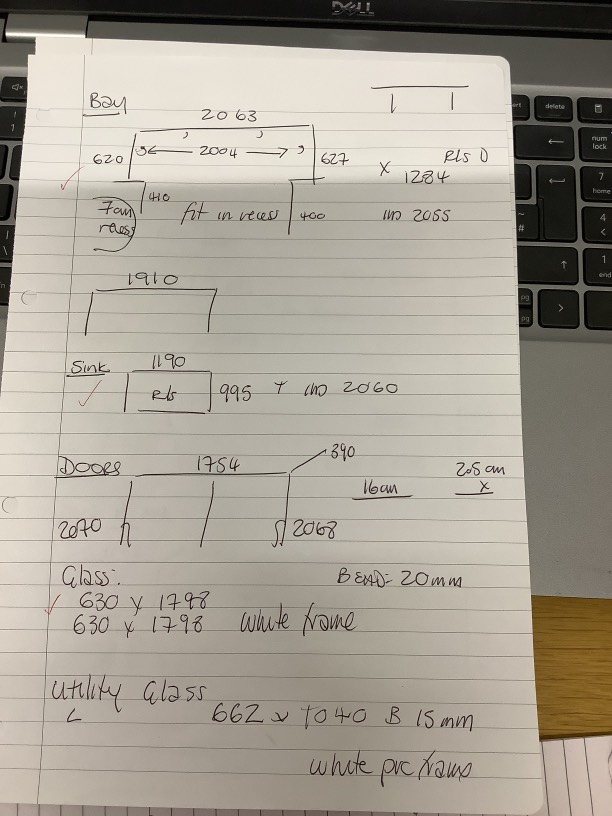 DELL
delete
num lock
7 home
4
1 end
Bay
2063
620 2004 627 x 1284 Rls D
410 fit in recess 400
7cm recess
2055
1910
Sink 1190
Rls 995 2060
DOORS 1754 390
16cm 20.5cm x
2070 2068
Glass: BEAD = 20mm
630 x 1798
630 x 1798 white frame
Utility Glass
L 662 x 1040 B 15mm
white pvc frame